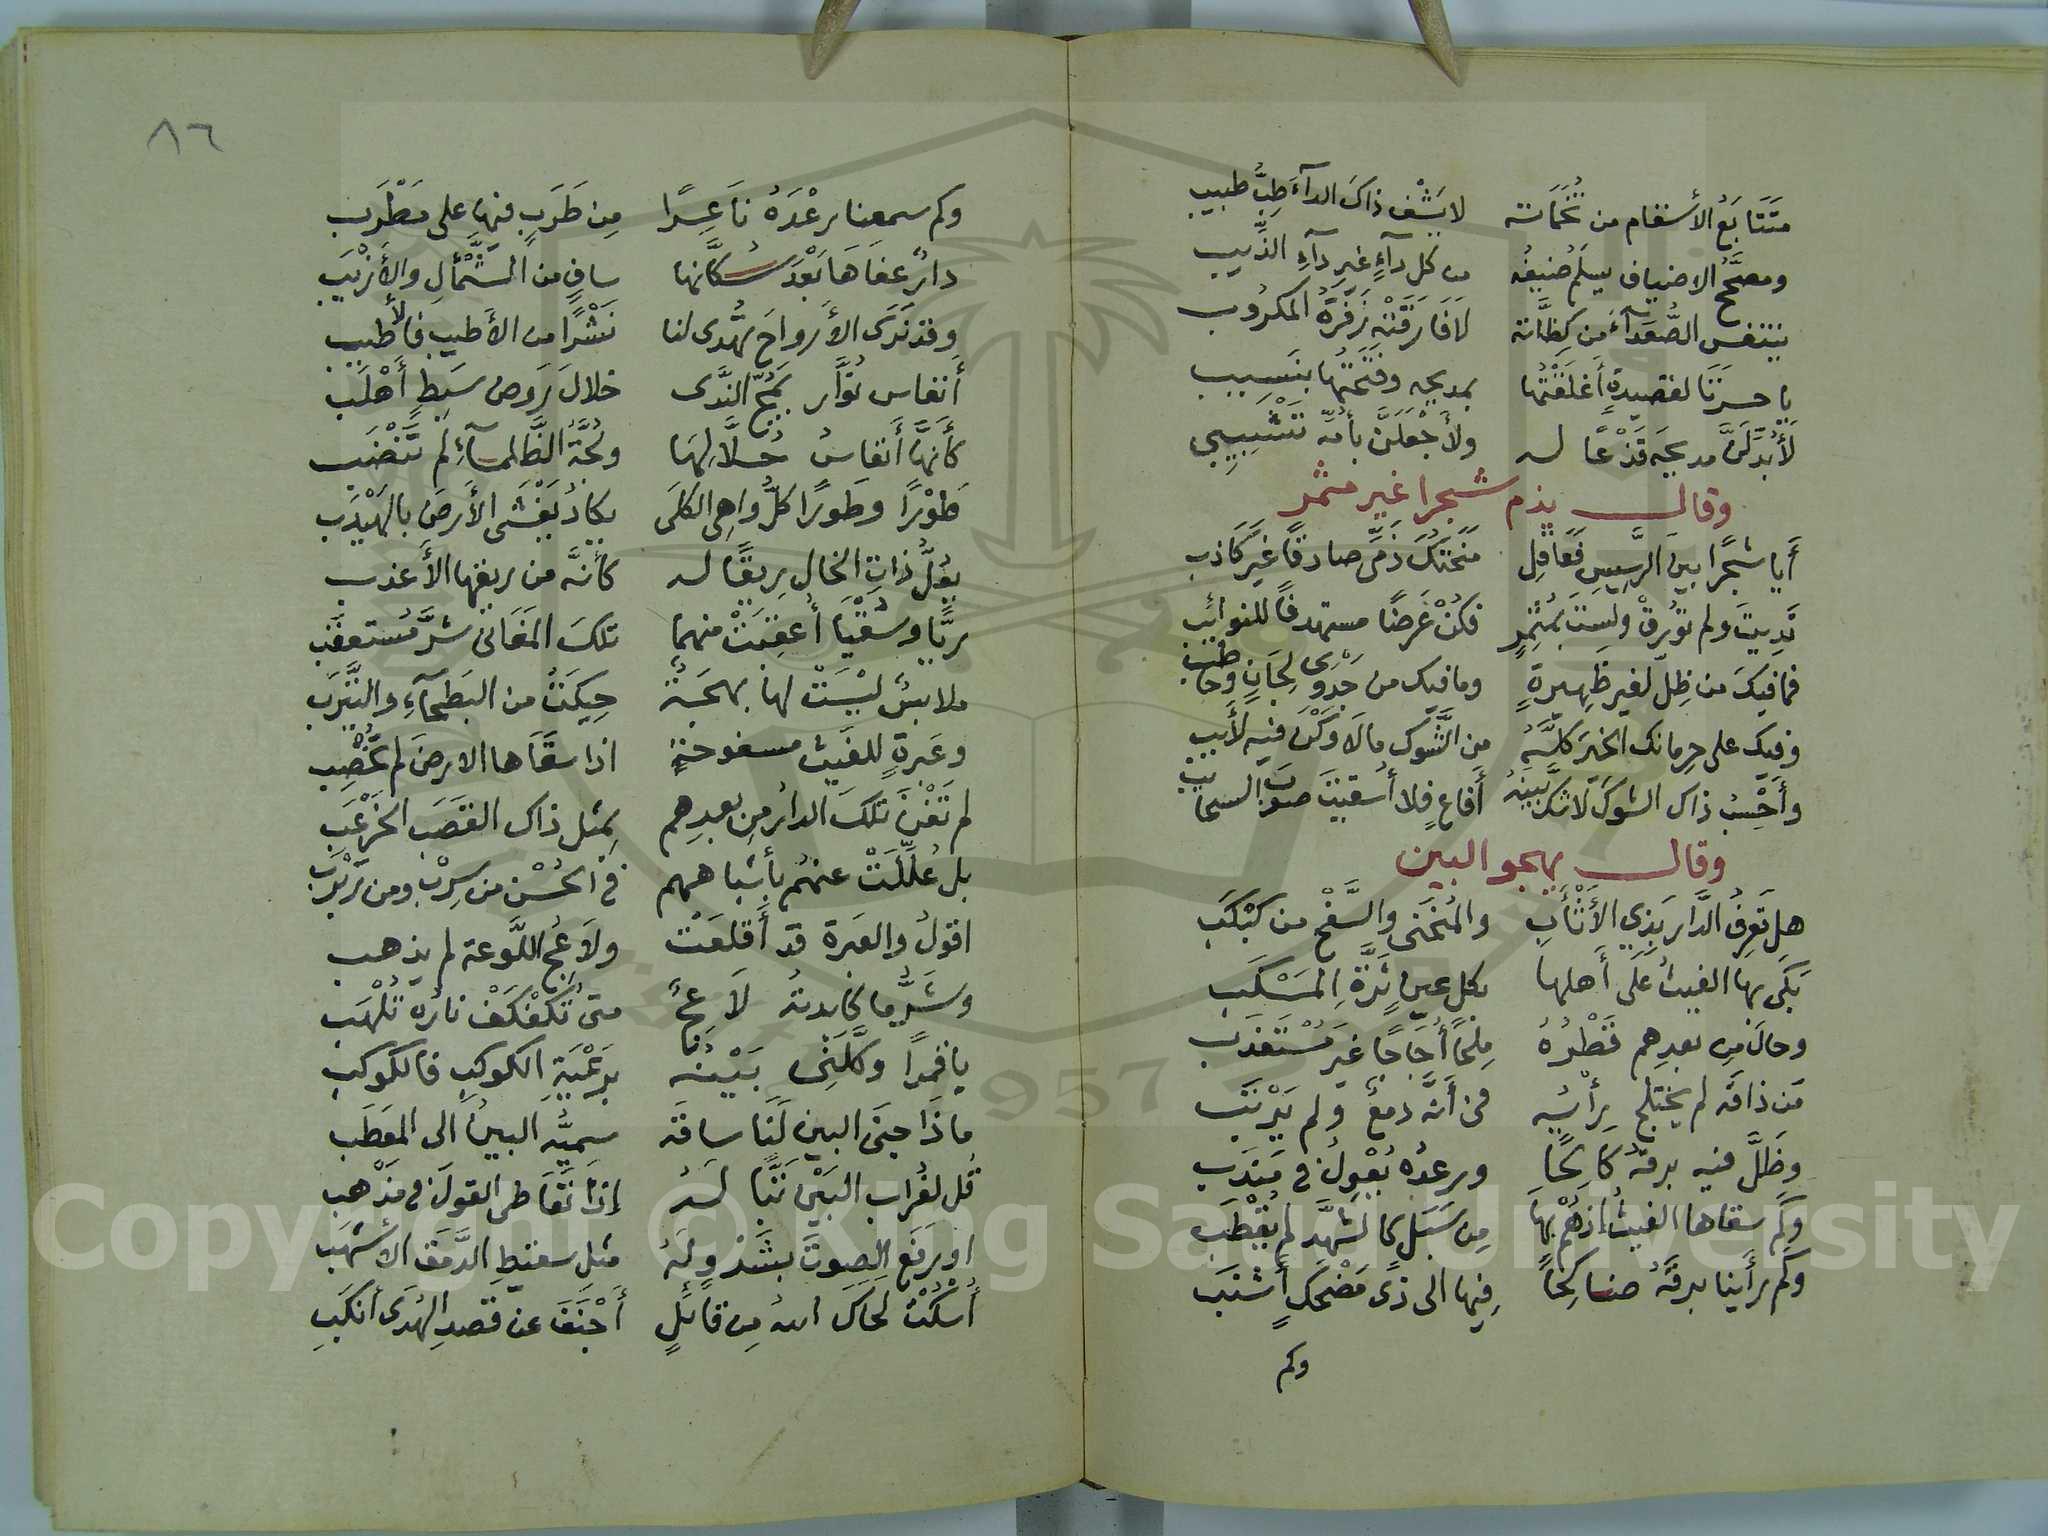 متتابع الأسقام من تخماته لا يشف ذاك الدآء طب طبيب
ومصحح الاضياف يسلم ضيفه من كل دآء غير دآء الذيب
يتنفس الصعدآء من كظاته لا فارقته زفرة المكروب
يا حسرتا لقصيدة أغلقتها بمديحه وفتحتها بنسيب
لأبدلن مديحه قذعا له ولأجعلن بأمه تشبيبي
وقال يذم شجرا غير مثمر
أيا شجرا بين الرسيس فعاقل منحتك ذمى صادقا غير كاذب
نديت ولم تورق ولست بمثمر فكن غرضا مستهدفا للنوائب
فما فيك من ظل لغير ظهيرة وما فيك من جدوى لجان وحاطب
وفيك على حرمانك الخير كله من الشوك مالا وكن فيه لأيب
وأحسب ذاك الشوك لا شك بينه أفاع فلا أسقيت صوب السحائب
وقال يهجو البين
هل تعرف الدار بذي الأثأب والمنحنى والسفح من كبكب
بكى بها الغيث على أهلها بكل عين ثرة المسكب
وحال من بعدهم قطره ملحا أجاجا غير مستعذب
من ذاقه لم يختلج رأسه فى أنه دمع ولم يرتب
وظل فيه برقه كالحا ورعده يعول فى مندب
وكم سقاها الغيث اذ هم بها من سبل كالشهد لم يقطب
وكم رأينا برقه ضاحكا فيها الى ذى مضحك أشنب
وكم
٨٦
وكم سمعنا رعده ناعرا من طرب فيها على مطرب
دار عفاها بعد سكانها ساف من الشمأل والأزيب
وقد نرى الأرواح تهدى لنا نشرا من الأطيب فالأطيب
أنفاس نوار يمج الندى خلال روض سبط أهلب
كأنها أنفاس حلالها ولجة الظلمآء لم تنضب
طورا وطورا كل واهى الكلى يكاد يغشى الأرض بالهيدب
يعل ذات الخال ريقا له كأنه من ريقها الأعذب
ريا وسقيا أعقبت منهما تلك المغانى شر مستعقب
ملابس ليست لها بهجة حيكت من البطحآء والتيرب
وعبرة للغيث مسفوحة اذا سقاها الارض لم تخصب
لم تغن تلك الدار من بعدهم بمثل ذاك القصب الخرعب
بل عللت عنهم بأشباههم فى الحسن من سرب ومن ربرب
اقول والعبرة قد أقلعت ولاعج اللوعة لم يذهب
وشر ما كابدته لاعج متى تكفكف ناره تلهب
يا قمرا وكلنى بينه برعية الكوكب فالكوكب
ماذا جنى البين لنا ساقه سميه البين الى المعطب
قل لغراب البين تبا له إذا تعاطى القول فى مذهب
او رفع الصوت بشدو له مثل سقيط الدمق الاشهب
أسكت لحاك الله من قائل أجنف عن قصد الهدى أنكب